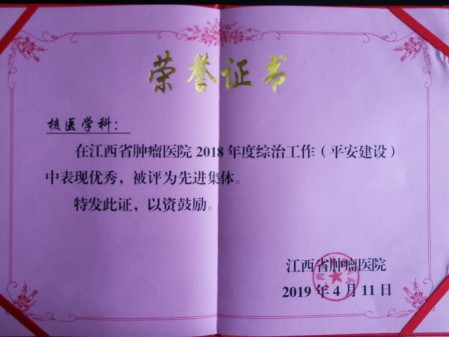 荣誉证书
核医学科：
在江西省肿瘤医院 2018 年度综治工作（平安建设）
中表现优秀，被评为先进集体。
特发此证，以资鼓励。
江西省肿瘤医院
2019 年 4 月 11 日